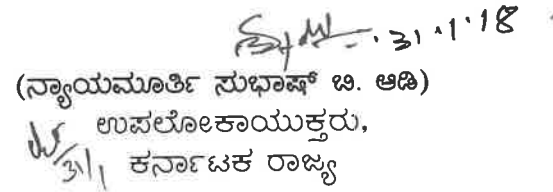 31.1.18
(ನ್ಯಾಯಮೂರ್ತಿ ಸುಭಾಷ್ ಬಿ. ಆಡಿ)
ಉಪಲೋಕಾಯುಕ್ತರು,
31/1 ಕರ್ನಾಟಕ ರಾಜ್ಯ